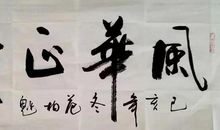 風華正
己亥年冬范柏魁